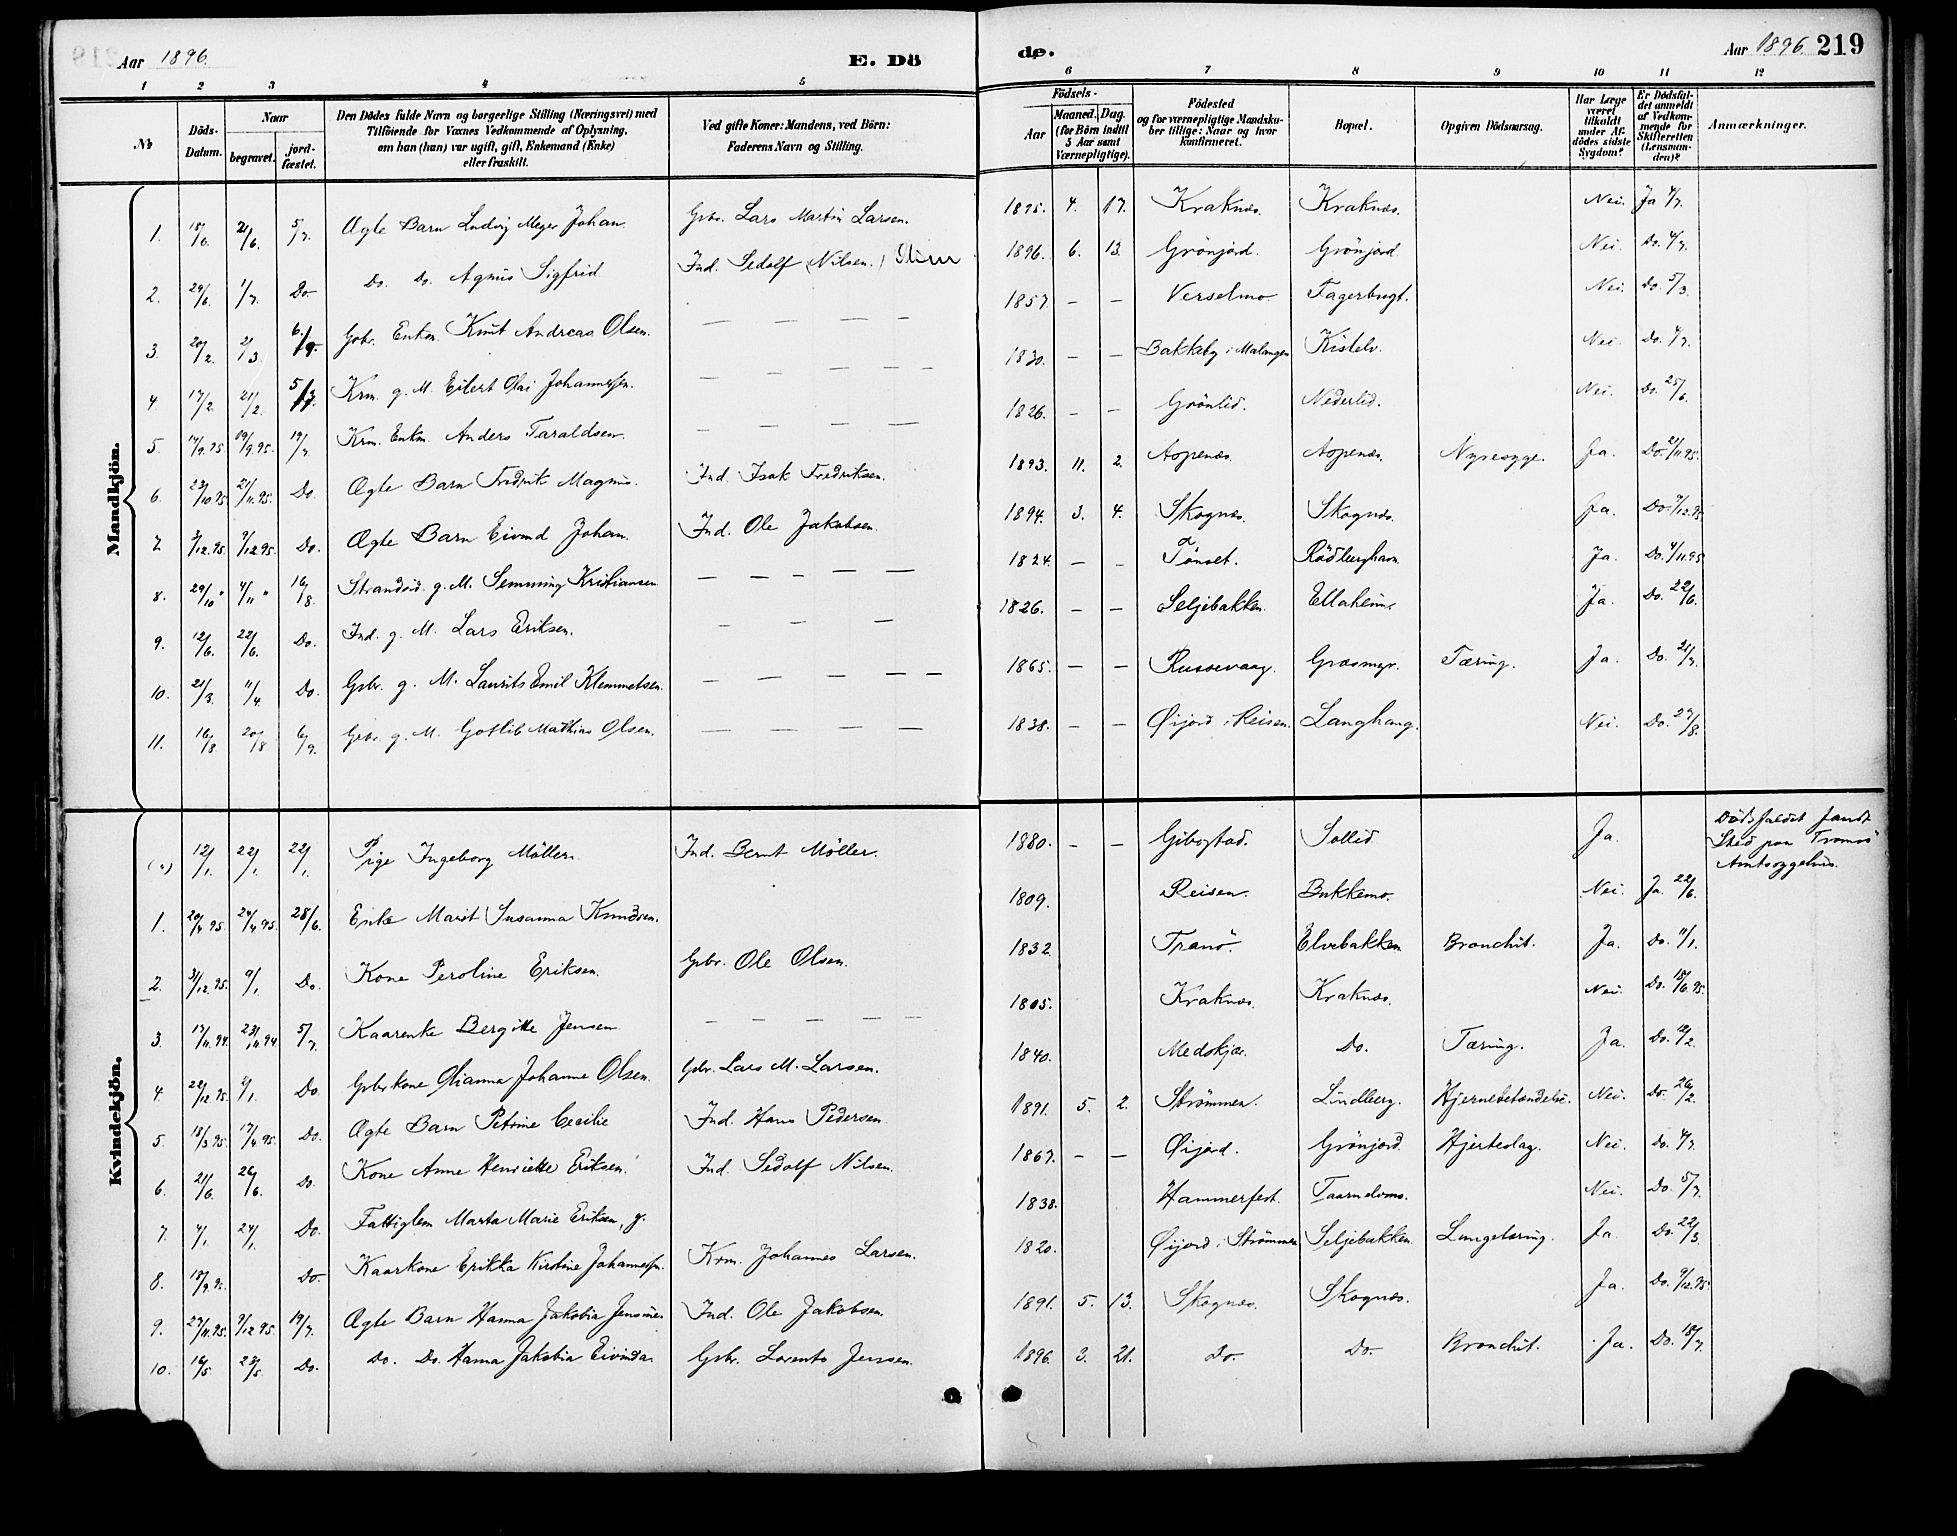 Aar 1896. E. Dö de. Aar 1896. 219
1 2 3 4 5 6 7 8 9 10 11 12
№ Döds-Datum. Naar begravet. jord-fæstet. Den Dödes fulde Navn og borgerlige Stilling (Næringsvei) med Tilföiende for Voxnes Vedkommende af Oplysning, om han (hun) var ugift, gift, Enkemand (Enke) eller fraskilt. Ved gifte Koner: Mandens, ved Börn: Faderens Navn og Stilling. Födsels- Aar Maaned. Dag. (for Börn indtil 5 Aar samt Værnepligtige). Födested og for værnepligtige Mandskaber tillige: Naar og hvor konfirmeret. Bopæl. Opgiven Dödsaarsag. Har Læge været tilkaldt under Afdödes sidste Sygdom? Er Dödsfaldet anmeldt af Vedkommende for Skifteretten (Lensmanden)? Anmærkninger.
Mandkjön.
1. 18/6. 21/6. 5/7. Ægte Barn Ludvig Meyer Johan. Gbr. Lars Martin Larsen. 1895. 4. 17. Kraknæs. Kraknæs. Nei. Ja 4/7.
2. 29/6. 1/7. Do. Do. Do. Agnus Sigfrid Ind. Sedolf (Nilsen.) 1896. 6. 13. Grönjord. Grönjord. Nei. Do. 4/7.
3. 20/2. 2/3. 6/9. Gbr. Enkm. Knut Andreas Olsen. — — — — 1857. — — Verselmo. Fagerbugt. Nei. Do. 5/3.
4. 17/2. 21/2. 5/7. Krm. g. M. Eilert Olai Johannessen. — — — — 1830. — — Bakkeby i Malangen Kistelv. Nei. Do. 4/7.
5. 14/9.95. 19/9.95. 19/7. Krm. Enkm. Anders Taraldsen. — — — — 1826. — — Grönlid. Nederlid. Nei. Do. 25/6.
6. 23/10.95. 21/11.95. Do. Ægte Barn Fredrik Magnus. Ind. Isak Fredriksen. 1893. 11. 2. Aspenæs. Aspenæs. Nyresyge. Ja. Do. 21/11.95.
7. 3/12.95. 9/12.95. Do. Ægte Barn Eivind Johan. Ind. Ole Jakobsen. 1894. 3. 4. Skognæs. Skognæs. Ja. Do. 9/12.95.
8. 29/10 " 4/11 " 16/8. Strandsid. g. M. Semming Kristiansen — — — — — 1824. — — Tönset. Rödberghavn. Ja. Do. 4/11.95
9. 12/6. 22/6. Do. Ind. g. M. Lars Eriksen. — — — 1826. — — Seljebakken. Ellaheim. Ja. Do. 22/6.
10. 21/3. 11/4. Do. Gbr. g. M. Laurits Emil Klemmetsen. — — — — — 1865. — — Russevaag. Græsmyr. Tæring. Ja. Do. 21/7.
11. 16/8 20/8 6/9. Gbr. g. M. Gotlib Mathias Olsen. — — — — 1838. — — Öijord i Reisen. Langhaug. Nei. Do. 27/8.
Kvindekjön.
12/1. 22/1. 22/1. Pige Ingeborg Möller. Ind. Bernt Möller. 1880. — — Gibostad. Sollid. Ja. Dödsfaldet fandt Sted paa Tromsö Amtssygehus.
1. 20/4 95. 24/4 95. 28/6. Enke Marit Susanna Knudsen. 1809. Reisen. Bukkemo. Nei. Ja. 22/6.
2. 31/12.95. 9/1. Do. Kone Peroline Eriksen. Gbr. Ole Olsen. 1832. Tranö. Elvebakken Bronchit. Ja. Do. 11/1.
3. 17/11.94. 23/11.94 5/7. Kaarenke Bergitte Jensen. — — — — — 1805. Kraknæs. Kraknæs. Nei. Do. 18/6.95.
4. 22/12.95. 2/1. Do Gbr kone Olianna Johanne Olsen. Gbr. Lars M. Larsen. 1840. Medskjær. Do. Tæring. Ja. Do. 12/2.
5. 18/3.95. 17/4 95. Do. Ægte Barn Petrine Cecilie Ind. Hans Pedersen 1891. 5. 2. Strömmen. Lindberg. Hjernebetændelse. Nei. Do. 26/2.
6. 21/6. 26/6. Do. Kone Anne Henriette Eriksen. Ind. Sedolf Nilsen. 1867. — — Öijord. Grönjord. Hjerteslag. Nei. Do. 4/7.
7. 4/1. 24/1. Do. Fattiglem Marta Marie Eriksen, g. 1838. Hammerfest. Taarnelvmo. Nei. Do. 5/7.
8. 18/9.95. Do. Kaarkone Erikka Kirstine Johannessen. Krm. Johannes Larsen. 1820. Öijord i Strömmen Seljebakken. Lungetæring. Ja. Do. 22/3
9. 27/11.95. 9/12 95. 19/7. Ægte Barn Hanna Jakobia Jensine. Ind. Ole Jakobsen. 1891. 5. 13. Skognæs. Skognæs. Ja. Do. 9/12.95.
10. 16/5. 23/5. Do. Do. Do. Hanna Jakobia Eivinda. Gbr. Lorents Jensen. 1896. 3. 21. Do. Do. Bronchit. Ja. Do. 18/7.